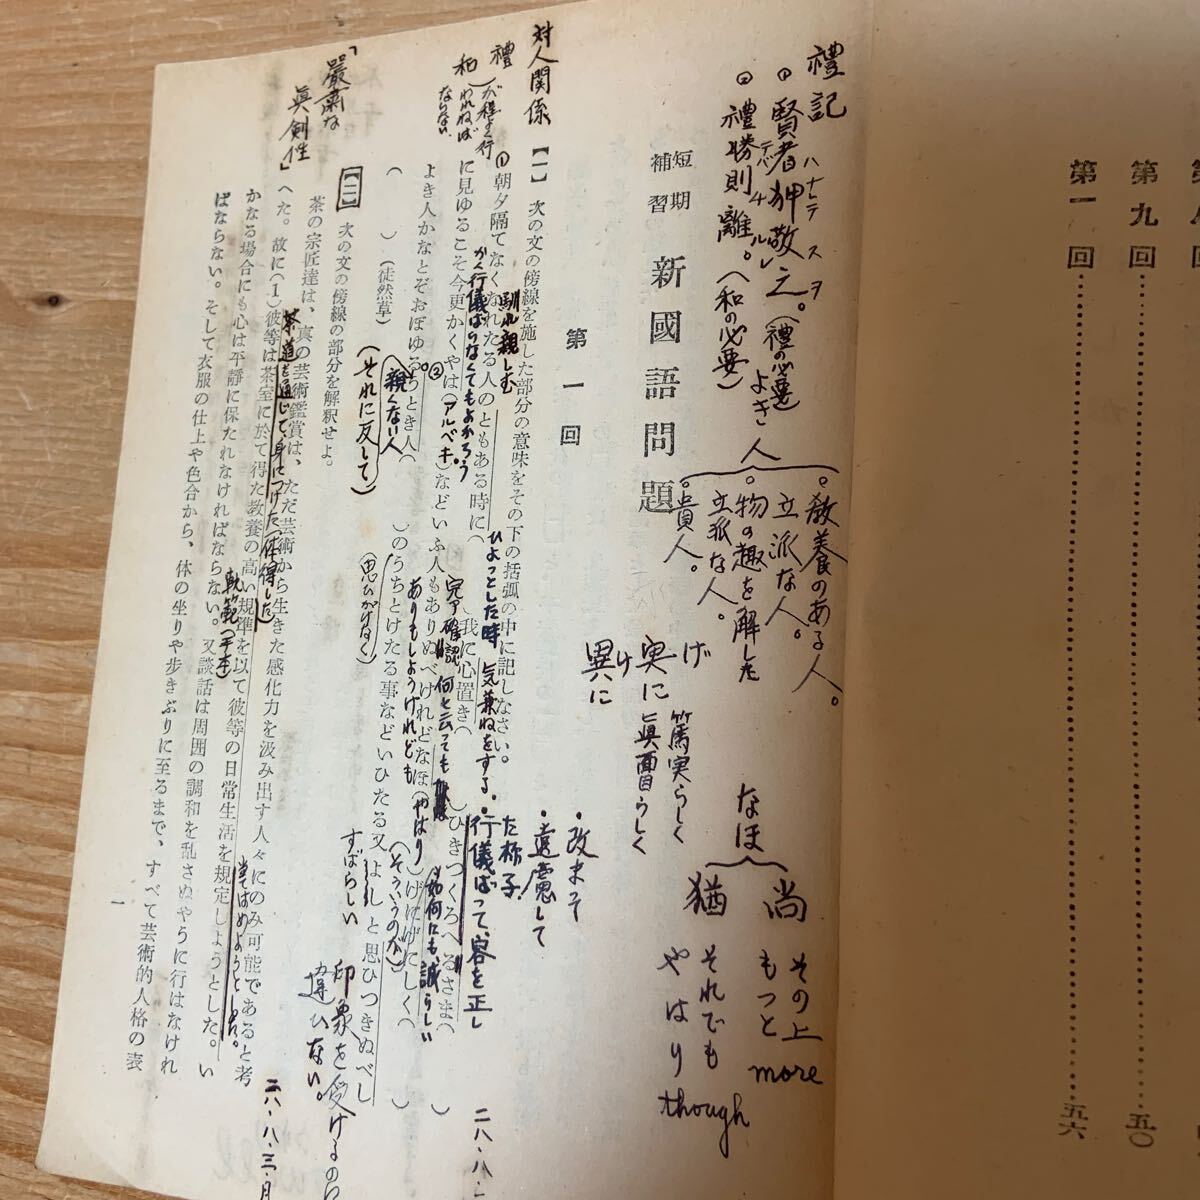 第九回……五〇
第一回……五六
禮記
㋑賢者狎敬之。(禮の必要)
ハナレテスヲ
㋺禮勝則離。(和の必要)
よき人
。教養のある人。
立派な人。
。物の趣を解した
立派な人。
。貴人。
げ
実に
異に
篤実らしく
眞面目らしく
なほ
尚
その上
もつと
more
猶
それでも
やはり
though
短期
補習
新國語問題
第一回
・改まつて
・遠慮して
対人関係
禮
和
が程よく行
われねば
ならない
【一】次の文の傍線を施した部分の意味をその下の括弧の中に記しなさい。
①朝夕隔てなくなれたる人のともある時に(
馴れ親しむ
ひよつとした時
)我に心置き(
気兼ねをする。
)ひきつくろへるさま(
・行儀ばつて、容を正し
た称子。
に見ゆるこそ今更かくやは(アルベキ。)などいふ人もありぬべけれどなほ(やはり)げにげにしく(
かく行儀ばらなくてもよかろう
完了 確認
何と云ても
ありもしようけれども
如何にも、誠らしい
(そういうのが)
よき人かなとぞおぼゆる。②うとき人(
親くない人
)のうちとけたる事などいひたる又よしと思ひつきぬべし
(思ひがけなく)
すばらしい
印象を受けるのに
違ひない。
(それに反して)
( )(徒然草)
【二】次の文の傍線の部分を解釈せよ。
茶の宗匠達は、真の芸術鑑賞は、ただ芸術から生きた感化力を汲み出す人々にのみ可能であると考
へた。故に(1)彼等は茶室に於て得た教養の高い規準を以て彼等の日常生活を規定しようとした。い
茶道を通じて、身につけた(体得した)
軌範(手本)
当てはめようとした。
かなる場合にも心は平靜に保たれなければならない。又談話は周囲の調和を乱さぬやうに行はなけれ
ばならない。そして衣服の仕上や色合から、体の坐りや歩きぶりに至るまで、すべて芸術的人格の表
「嚴肅な
眞剣性」
二八・八・
二八・八・三・月
一